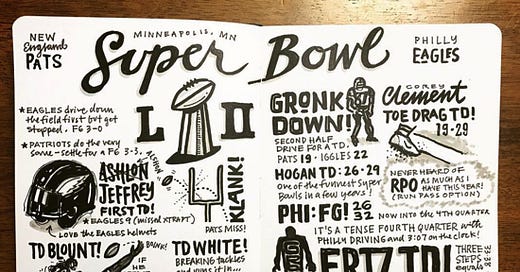 NEW
England
PATS
MINNEAPOLIS, MN
Super Bowl
PHILLY
EAGLES
LII
★EAGLES drive down
the field first but got
stopped. FG 3-0
★PATRIOTS do the very
same - settle for a FG 3-3.
ALSHON
ASHLON
JEFFREY
FIRST TD!
★EAGLES 9 (missed XTRAPT)
LOVE the EAGLES helmets
KLANK!
PATS MISS!
TD BLOUNT!
BOINK!
IF
HE
TD WHITE!
BREAKING tackles
and runs it in...
GRONK
DOWN!
SECOND HALF
DRIVE FOR A TD.
PATS 19 · IGGLES 22
HOGAN TD: 26-29
One of the funnest super
bowls in a few years!
PHI: FG! 26 32
NOW INTO THE 4TH QUARTER
IT'S A TENSE FOURTH QUARTER with
PHILLY DRIVING and 3:07 on the clock!
ERTZ TD!
THREE
STEPS
COREY
Clement
TOE DRAG TD!
19-29
NEVER HEARD OF
RPO AS MUCH AS I
HAVE THIS YEAR!
(RUN PASS OPTION)